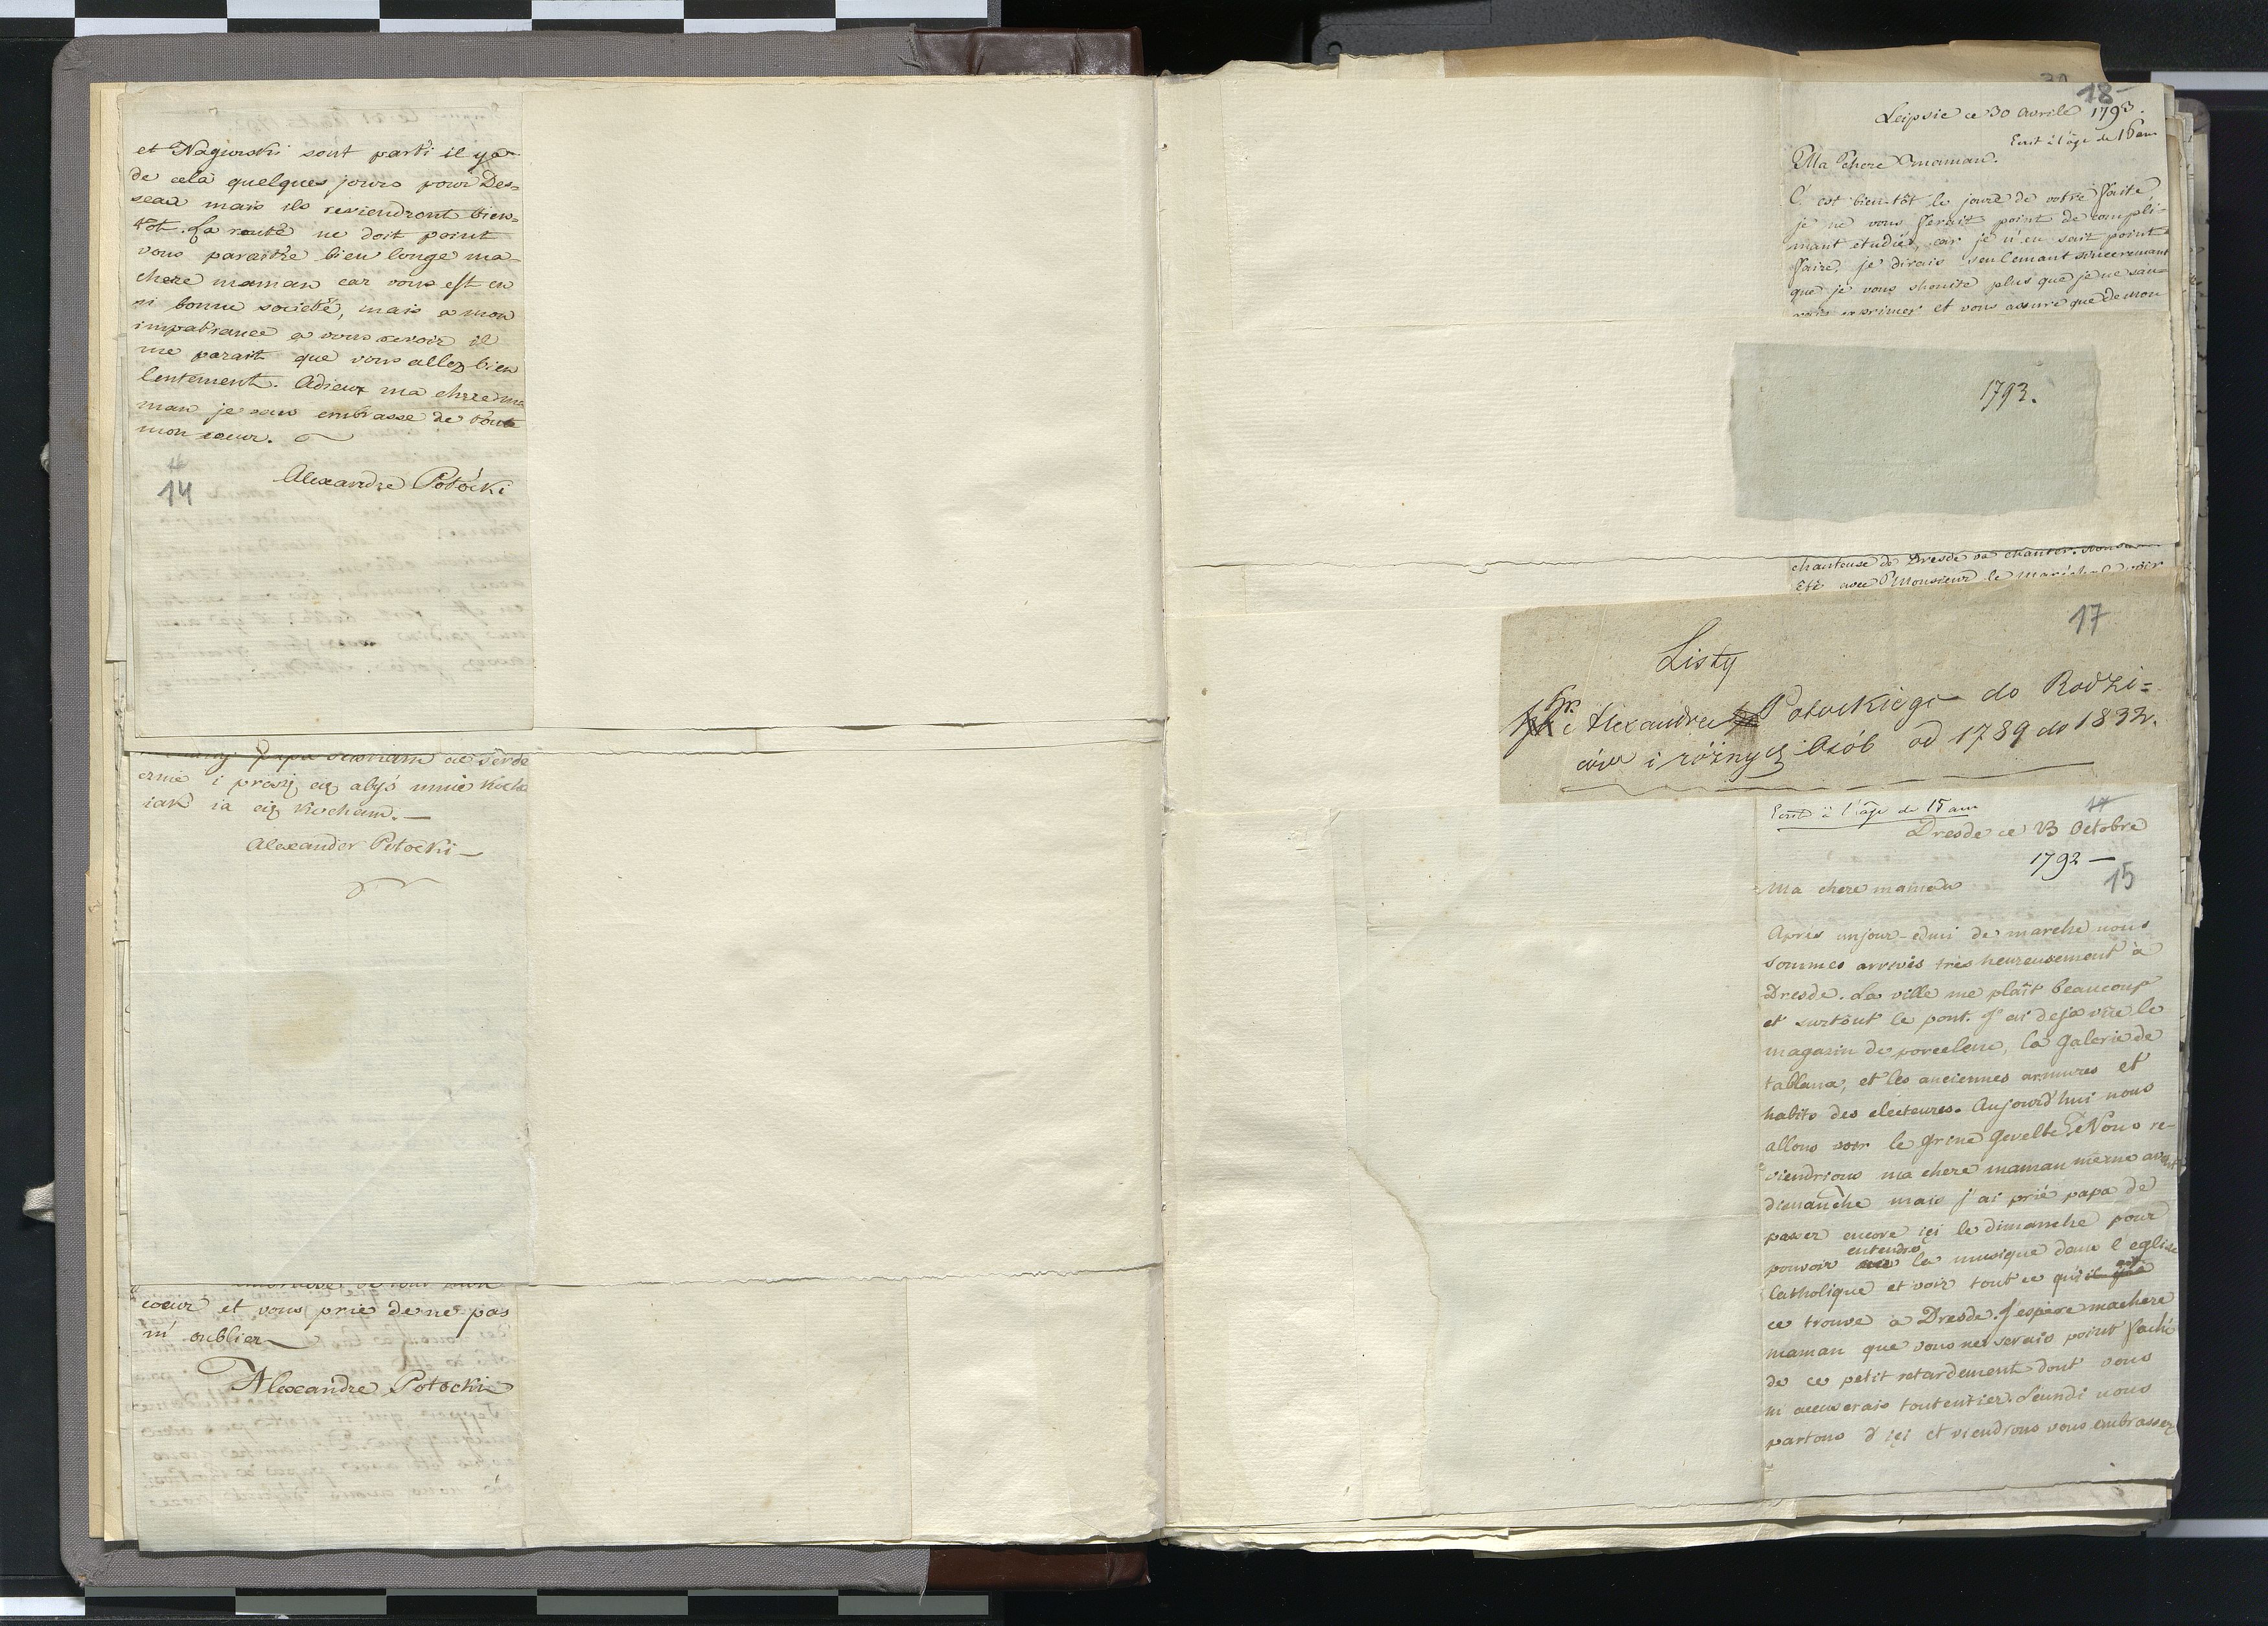 et Nagurski sont parti il ya
de cela quelques jours pour Des=
seau mais ils reviendront bien=
tôt. La route ne doit point
vous paraitre bien longe ma
chere maman car vous est en
si bonne société, mais a mon
impatiance a vous revoir il
me parait que vous allez bien
lentement. Adieux ma chere ma
man je vous embrasse de toute
mon coeur.
14
Alexandre Potocki
Papa
i proszę cię abyś mnie kocha
iak ia cię kocham. —
Alexander Potocki —
coeur et vous prie de ne pas
m' oublier
Alexandre Potocki
18
Leipsic ce 30 Avrile 1793.
Ecrit à l'âge de 16 ans
Ma chere maman.
C' est bientôt le jour de votre Faite
je ne vous Ferait point de compli=
mant etudiés, car je n'en sait point
Faire, je dirais seulemant sinceremant
que je vous shouite plus que je ne sau=
rais exprimer et vous assure que de mon
1793.
chanteuse de Dresde va chanter.
Eté avec Monsieur le Maréchal voir
17
Listy
hr. Alexandra Potockiego do Rodzi=
ców i różnych Osób od 1789 do 1832.
Ecrit à l'âge de 15 ans
Dresde ce 23 Octobre
1792 —
15
Ma chere maman
Après unjour-edmi de marche nous
sommes arrivés très heureusement à
Dresde. La ville me plaît beaucoup
et surtout le pont. J'ai deja vue le
magasin de porcelene, la Galerie de
tablaux, et les anciennes armures et
habits des electeures. Aujourd'hui nous
allons voir le Grine Gevelbe. Nous re-
viendrions ma chere maman même avant
dimanche mais j'ai prié papa de
passer encore içi le dimanche pour
pouvoir entendre la musique dans l'eglise
Catholique et voir tout ce qu'il y a
ce trouve à Dresde. J'espère machere
maman que vous ne serais point Fachi
de ce petit retardement dont vous
m' accuserais toutentier. Leundi nous
partons d'içi et viendrons vous embrasser